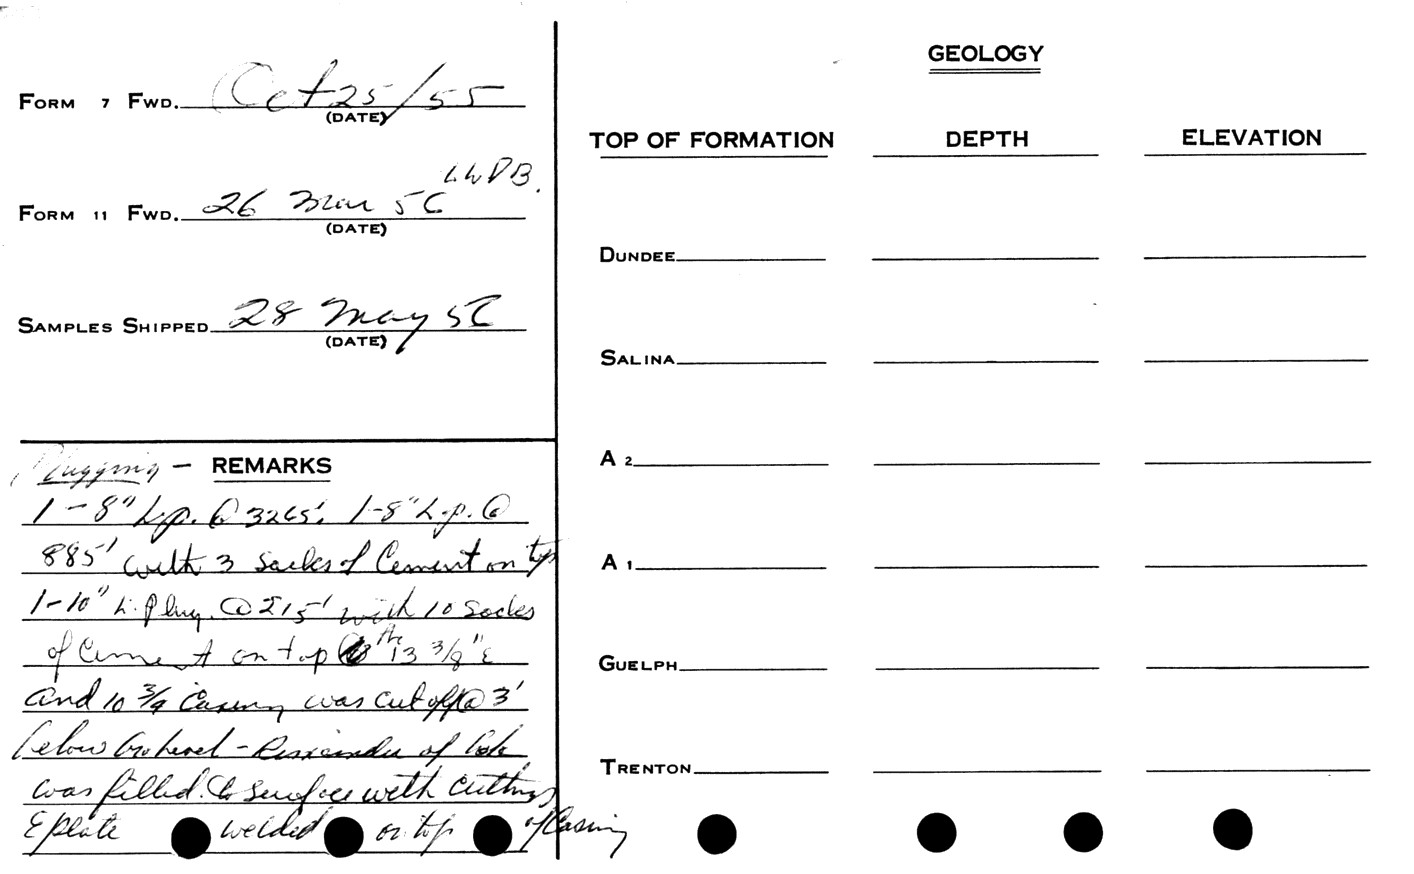 FORM 7 FWD. Oct 25/55
(DATE)
FORM 11 FWD. 26 Mar 56
(DATE)
SAMPLES SHIPPED 28 May 56
(DATE)
Plugging - REMARKS
1-8" L.p. @ 3265'. 1-8" L.p. @
885' with 3 Sacks of Cement on top
1-10" L. Plug. @ 215' with 10 Sacks
of Cement on top The 13 3/8" &
and 10 3/4 Casing was cut off @ 3'
below Gro level - Remainder of hole
was filled to surface with cuttings
& plate welded on top of Casing
GEOLOGY
TOP OF FORMATION DEPTH ELEVATION
DUNDEE
SALINA
A 2
A 1
GUELPH
TRENTON